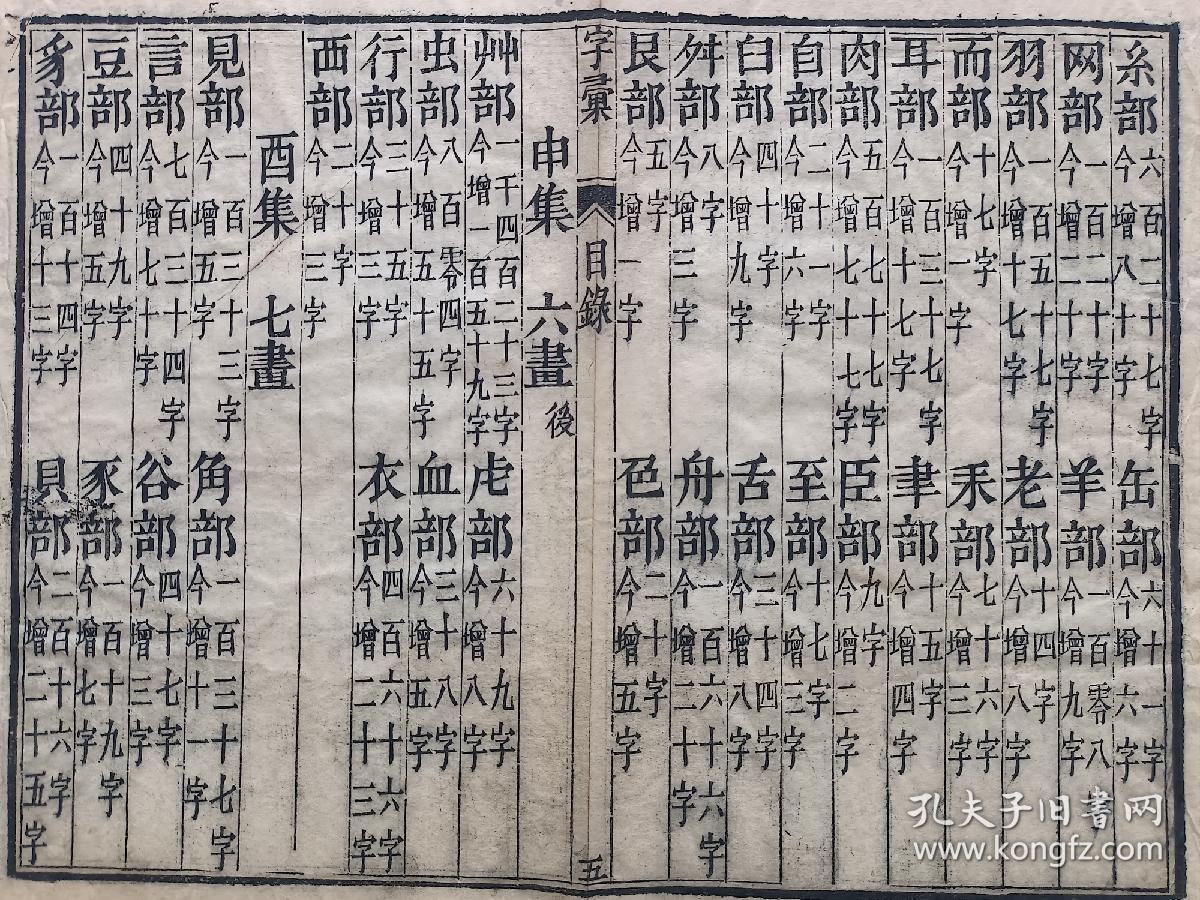 糸部 六百二十七字 今增八十字 缶部 六十一字 今增六字
网部 一百二十字 今增二十字 羊部 一百零八字 今增九字
羽部 一百五十七字 今增十七字 老部 十四字 今增八字
而部 十七字 今增一字 耒部 七十六字 今增三字
耳部 一百三十七字 今增十七字 聿部 十五字 今增四字
肉部 五百七十七字 今增七十七字 臣部 九字 今增二字
自部 二十一字 今增六字 至部 十七字 今增三字
臼部 四十字 今增九字 舌部 三十四字 今增八字
舛部 八字 今增三字 舟部 一百六十六字 今增二十字
艮部 五字 今增一字 色部 二十字 今增五字
字彙 目錄 五
申集 六畫 後
艸部 一千四百二十三字 今增一百五十九字 虍部 六十九字 今增八字
虫部 八百零四字 今增五十五字 血部 三十八字 今增五字
行部 三十五字 今增三字 衣部 四百六十六字 今增二十三字
襾部 二十字 今增三字
酉集 七畫
見部 一百三十三字 今增五字 角部 一百三十七字 今增十一字
言部 七百三十四字 今增七十字 谷部 四十七字 今增三字
豆部 四十九字 今增五字 豕部 一百十九字 今增七字
豸部 一百十四字 今增十三字 貝部 二百十六字 今增二十五字
孔夫子旧書网
www.kongfz.com